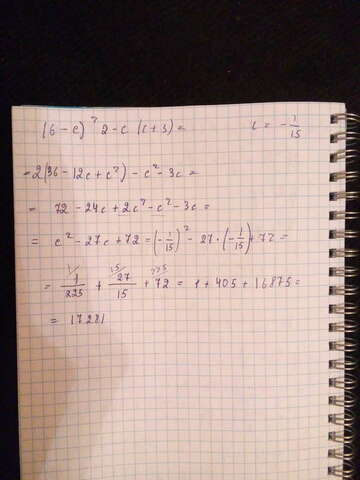 (6 - c)² 2 - c (c + 3) = c = - 1/15
= 2(36 - 12c + c²) - c² - 3c =
= 72 - 24c + 2c² - c² - 3c =
= c² - 27c + 72 = (- 1/15)² - 27 · (- 1/15) + 72 =
= 1/225 + 27/15 + 72 = 1 + 405 + 16875 =
= 17281